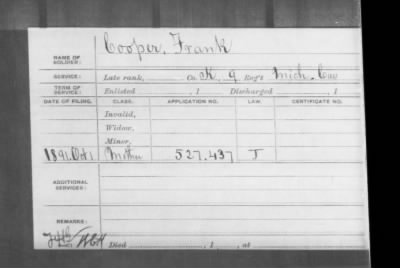 NAME OF SOLDIER: Cooper, Frank
SERVICE: Late rank, Co. K, 9 Reg't Mich. Cav
TERM OF SERVICE: Enlisted , 1 Discharged , 1
DATE OF FILING. CLASS. APPLICATION NO. LAW. CERTIFICATE NO.
Invalid,
Widow,
Minor,
1891 Oct 1 Mother 527.437 J
ADDITIONAL SERVICES:
REMARKS:
Died , 1 , at